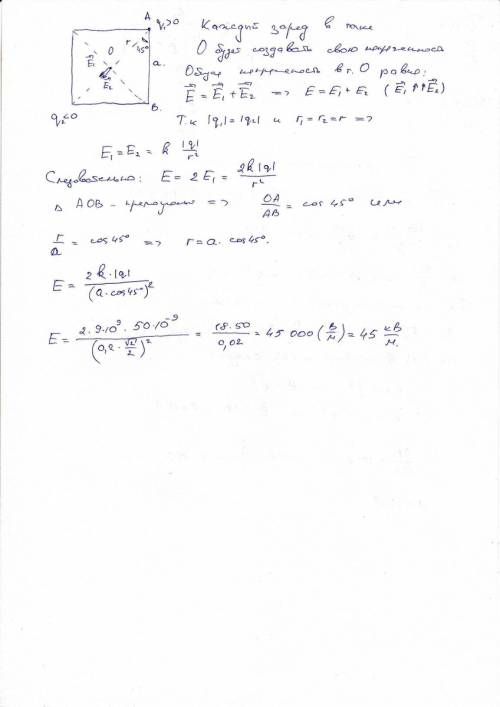 A q₁>0
Каждый заряд в точке
r 45° O a.
О будет создавать свою напряженность
E⃗₁ E⃗₂
Общая напряженность в т. О равна:
B.
E⃗ = E⃗₁ + E⃗₂ => E = E₁ + E₂ (E⃗₁ ↑↑ E⃗₂)
q₂<0
Т.к |q₁| = |q₂| и r₁ = r₂ = r =>
E₁ = E₂ = k |q| / r²
Следовательно: E = 2E₁ = 2k|q| / r²
Δ AOB - =>  OA / AB = cos 45° или
r / a = cos 45° => r = a · cos 45°.
E = 2k·|q| / (a·cos 45°)²
E = 2·9·10⁹·50·10⁻⁹ / (0,2·√2/2)² = 18·50 / 0,02 = 45 000 (В/м) = 45 кВ/м.